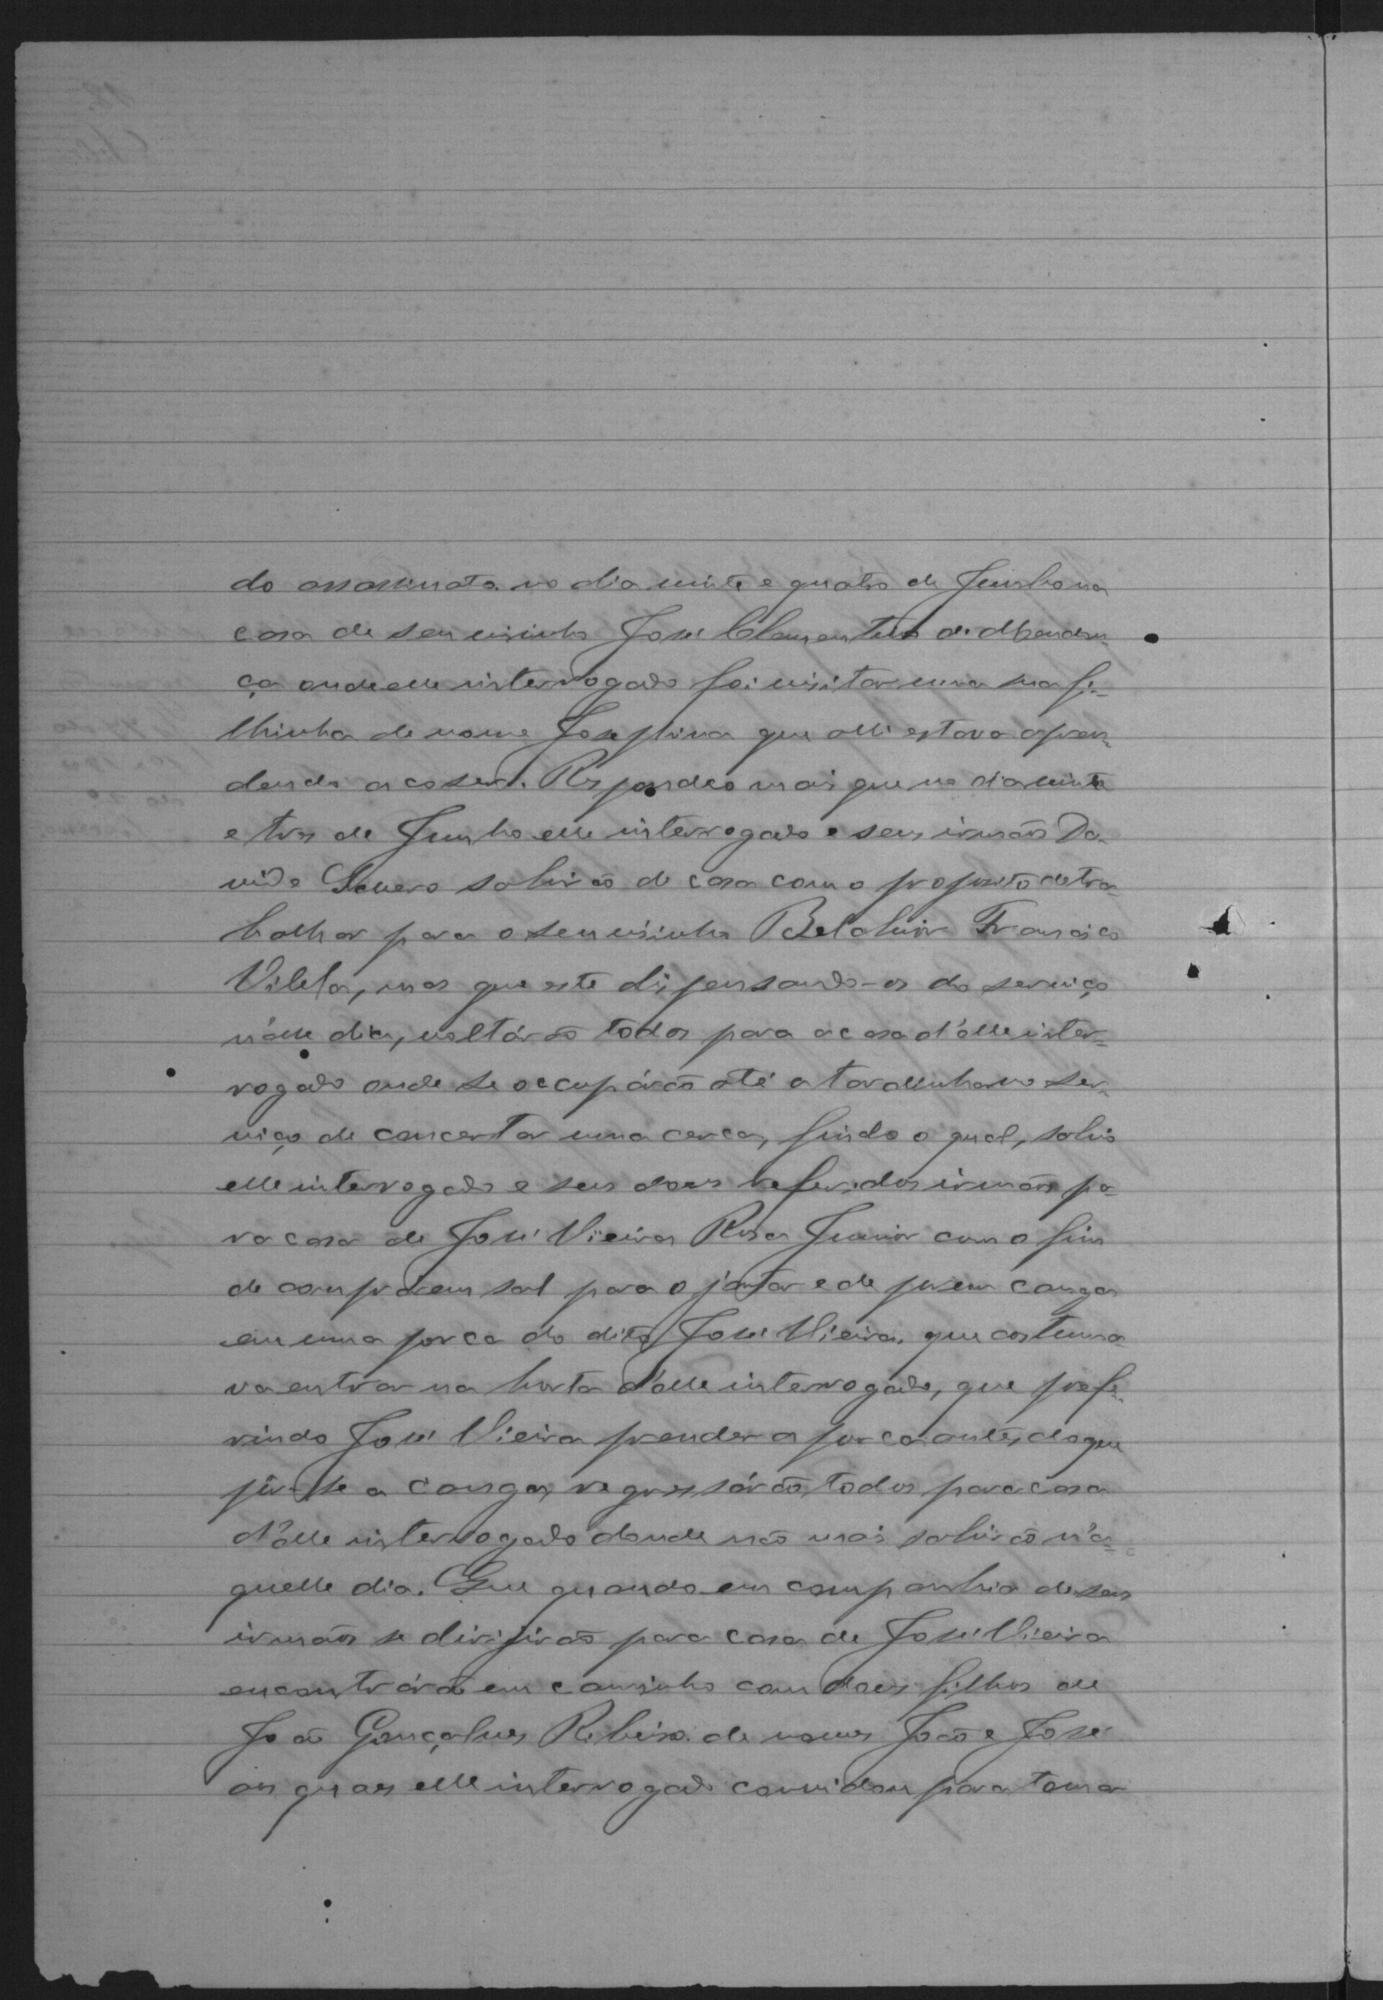 do assassinato no dia vinte e quatro de Junho na
casa de seu visinho José Clementino de Mendon-
ça onde elle interrogado foi visitar uma sua fi-
lhinha de nome Josephina que alli estava apren-
dendo a coser. Respondeo mais que no dia vinte
e tres de Junho elle interrogado e seus irmãos Da-
vid e Severo sahirão de casa com o proposito de tra-
balhar para o seu visinho Belchior Francisco
Vilela, mas que este dispensando-os do serviço
n'elle dia, voltárão todos para a casa d'elle inter-
rogado onde se occupárão até a tardinha no ser-
viço de concertar uma cerca, findo o qual, sahio
elle interrogado e seus dous referidos irmãos pa-
ra casa de José Vieira Rosa Junior com o fim
de comprarem sal para o jantar e de porem canga
em uma porca do dito José Vieira, que costuma-
va entrar na horta d'elle interrogado, que prefe-
rindo José Vieira prender a porca antes do que
pôr-se a canga, regressárão todos para casa
d'elle interrogado donde não mais sahirão n'a-
quelle dia. Que quando em companhia de seus
irmãos se dirigirão para casa de José Vieira
encontrárão em caminho com dous filhos de
João Gonçalves Ribeiro de nomes João e José
os quaes elle interrogado convidou para tomar